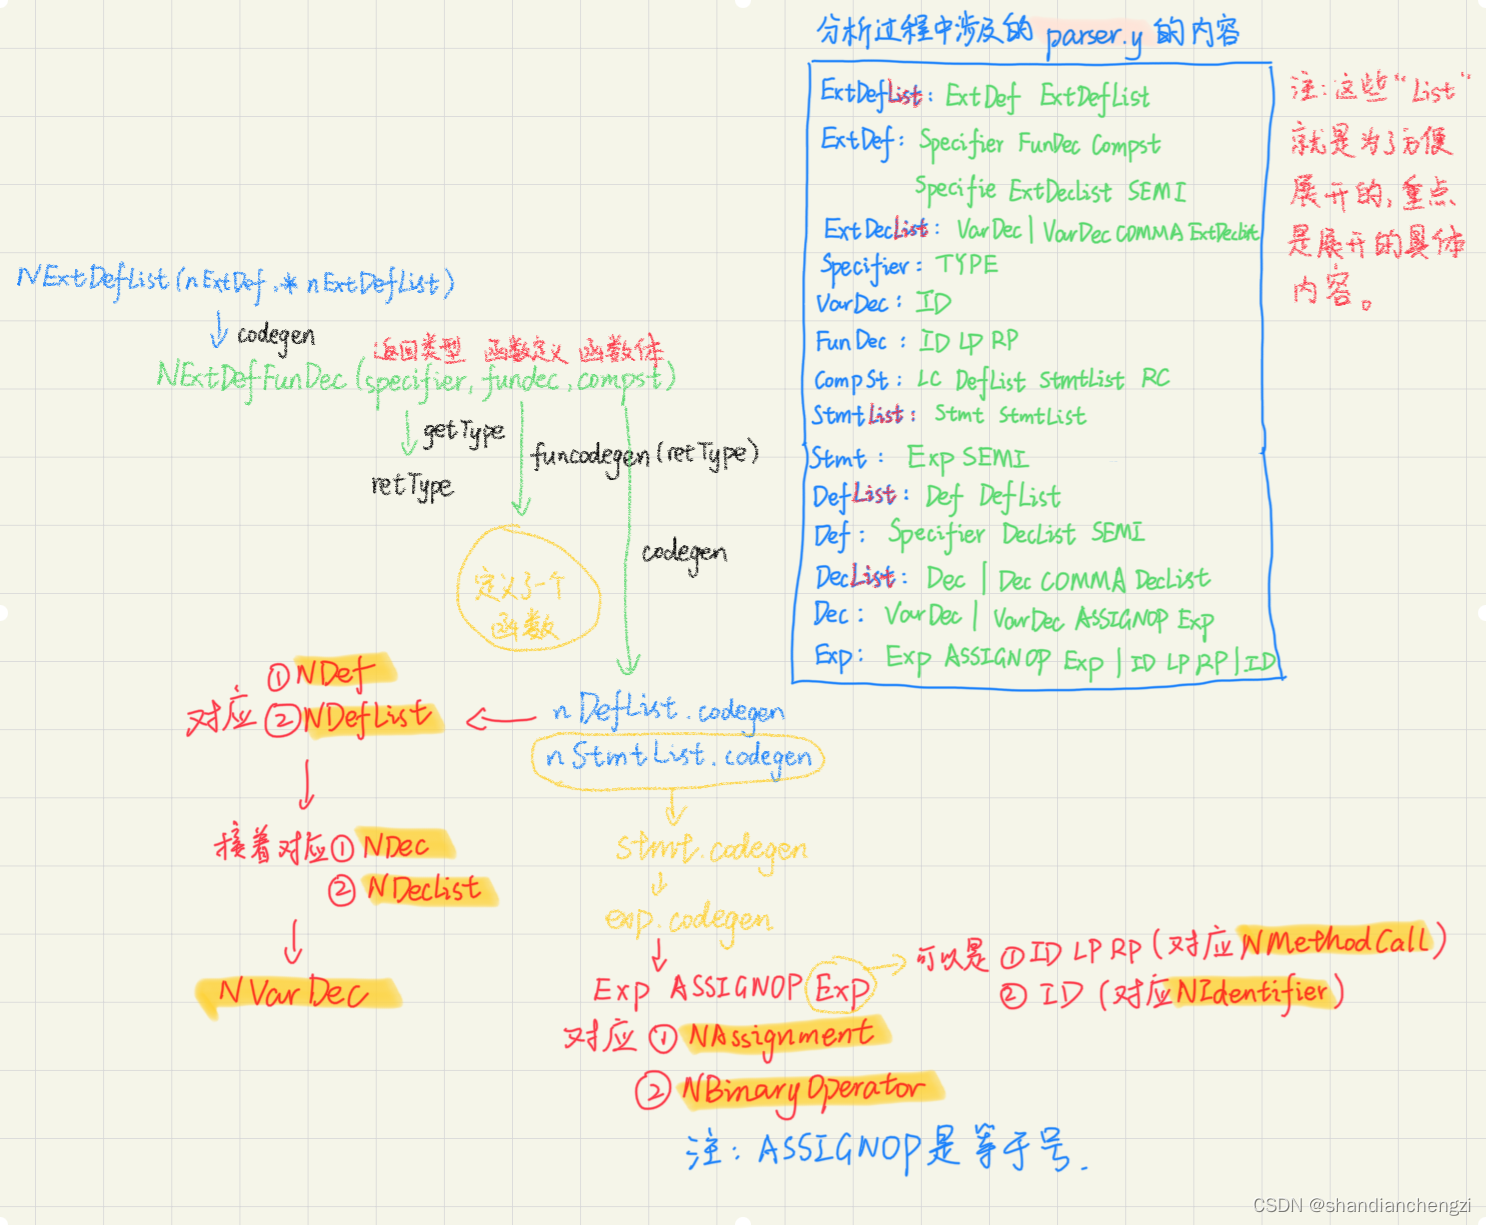 分析过程中涉及的 parser.y 的内容
ExtDefList: ExtDef ExtDefList
ExtDef: Specifier FunDec Compst
Specifie ExtDecList SEMI
ExtDecList: VarDec | VarDec COMMA ExtDecList
Specifier: TYPE
VarDec: ID
FunDec: ID LP RP
CompSt: LC DefList StmtList RC
StmtList: Stmt StmtList
Stmt: Exp SEMI
DefList: Def DefList
Def: Specifier DecList SEMI
DecList: Dec | Dec COMMA DecList
Dec: VarDec | VarDec ASSIGNOP Exp
Exp: Exp ASSIGNOP Exp | ID LP RP | ID
注:这些“List”
就是为了方便
展开的,重点
是展开的具体
内容。
NExtDefList(nExtDef,* nExtDefList)
codegen
返回类型 函数定义 函数体
NExtDefFunDec(specifier, fundec, compst)
getType
funcodegen(retType)
retType
codegen
定义了一个
函数
①NDef
对应②NDefList
nDefList.codegen
nStmtList.codegen
接着对应①NDec
②NDecList
NVarDec
stmt.codegen
exp.codegen
Exp ASSIGNOP Exp
可以是 ①ID LP RP(对应NMethodCall)
②ID(对应NIdentifier)
对应①NAssignment
②NBinaryOperator
注:ASSIGNOP是等于号.
CSDN @shandianchengzi